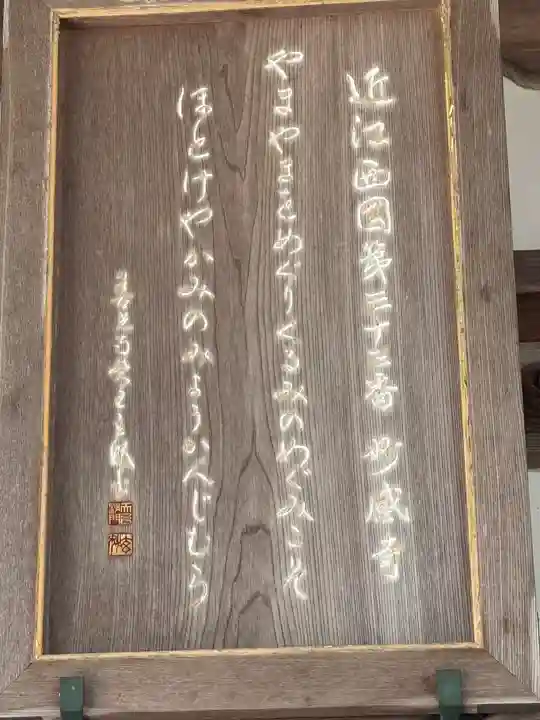 近江西国第三十三番 妙感寺
やまやまとめぐりくるみのめぐみこそ
ほとけやかみのみょうかんじむら